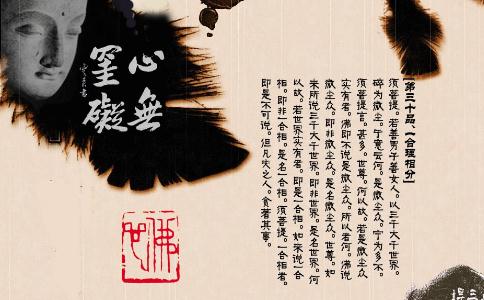 【第三十品、一合理相分】
須菩提。若善男子善女人。以三千大千世界。
碎為微塵。于意云何。是微塵眾。寧為多不。
須菩提言。甚多。世尊。何以故。若是微塵眾
實有者。佛即不說是微塵眾。所以者何。佛說
微塵眾。即非微塵眾。是名微塵眾。世尊。如
來所說三千大千世界。即非世界。是名世界。何
以故。若世界實有者。即是一合相。如來說一合
相。即非一合相。是名一合相。須菩提。一合相者。
即是不可說。但凡夫之人。貪著其事。
心無
罣礙